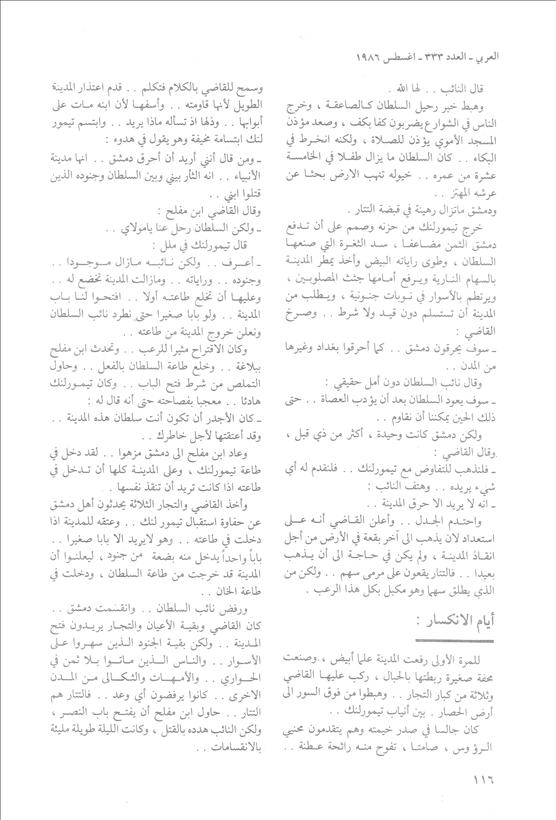 العربي - العدد ٣٣٣ - اغسطس ١٩٨٦
قال النائب . . لها الله .
وهبط خبر رحيل السلطان كالصاعقة ، وخرج
الناس في الشوارع يضربون كفا بكف ، وصعد مؤذن
المسجد الأموي يؤذن للصلاة ، ولكنه انخرط في
البكاء . . كان السلطان ما يزال طفلا في الخامسة
عشرة من عمره . . خيوله تنهب الارض بحثا عن
عرشه المهتز . .
ودمشق ماتزال رهينة في قبضة التتار .
خرج تيمورلنك من حزنه وصمم على أن تدفع
دمشق الثمن مضاعفا ، سد الثغرة التي صنعها
السلطان ، وطوى راياته البيض وأخذ يمطر المدينة
بالسهام النارية ويرفع أمامها جثث المصلوبين ،
ويرتطم بالأسوار في نوبات جنونية ، ويطلب من
المدينة أن تستسلم دون قيد ولا شرط . . وصرخ
القاضي :
ـ سوف يحرقون دمشق . . كما أحرقوا بغداد وغيرها
من المدن . .
وقال نائب السلطان دون أمل حقيقي :
ـ سوف يعود السلطان بعد أن يؤدب العصاة . . حتى
ذلك الحين يمكننا أن نقاوم . .
ولكن دمشق كانت وحيدة ، أكثر من ذي قبل ،
وقال القاضي :
ـ فلنذهب للتفاوض مع تيمورلنك . . فلنقدم له أي
شيء يريده . . وهتف النائب :
ـ انه لا يريد الا حرق المدينة . .
واحتدم الجدل . . وأعلن القاضي أنه على
استعداد لان يذهب الى آخر بقعة في الأرض من أجل
انقاذ المدينة ، ولم يكن في حاجة الى أن يذهب
بعيدا . . فالتتار يقعون على مرمى سهم . . ولكن من
الذي يطلق سهما وهو مكبل بكل هذا الرعب .
أيام الانكسار :
للمرة الأولى رفعت المدينة علما أبيض ، وصنعت
محفة صغيرة ربطتها بالحبال ، ركب عليها القاضي
وثلاثة من كبار التجار . . وهبطوا من فوق السور الى
أرض الحصار . بين أنياب تيمورلنك . .
كان جالسا في صدر خيمته وهم يتقدمون محنيي
الرؤوس ، صامتا ، تفوح منه رائحة عطنة . .
وسمح للقاضي بالكلام فتكلم . . قدم اعتذار المدينة
الطويل لأنها قاومته . . وأسفها لأن ابنه مات على
أبوابها . . وذلها اذ تسأله ماذا يريد . . وابتسم تيمور
لنك ابتسامة مخيفة وهو يقول في هدوء :
ـ ومن قال أنني أريد أن أحرق دمشق . . انها مدينة
الأنبياء . . انه الثأر بيني وبين السلطان وجنوده الذين
قتلوا ابني . .
وقال القاضي ابن مفلح :
ـ ولكن السلطان رحل عنا يامولاي . .
قال تيمورلنك في ملل :
ـ أعرف . . ولكن نائبه مازال موجودا . .
وجنوده . . وراياته . . ومازالت المدينة تخضع له . .
وعليها أن تخلع طاعته أولا . . افتحوا لنا باب
المدينة . . ولو بابا صغيرا حتى نطرد نائب السلطان
ونعلن خروج المدينة من طاعته . .
وكان الاقتراح مثيرا للرعب . . وتحدث ابن مفلح
ببلاغة . . وخلع طاعة السلطان بالفعل . . وحاول
التملص من شرط فتح الباب . . وكان تيمورلنك
هادئا . . معجبا بفصاحته حتى أنه قال له :
ـ كان الأجدر أن تكون أنت سلطان هذه المدينة . .
وقد أعتقتها لأجل خاطرك . .
وعاد ابن مفلح الى دمشق مزهوا . . لقد دخل في
طاعة تيمورلنك ، وعلى المدينة كلها أن تدخل في
طاعته اذا كانت تريد أن تنقذ نفسها .
وأخذ القاضي والتجار الثلاثة يحدثون أهل دمشق
عن حفاوة استقبال تيمور لنك . . وعتقه للمدينة اذا
دخلت في طاعته . . وهو لايريد الا بابا صغيرا . .
باباً واحداً يدخل منه بضعة من جنود ، ليعلنوا أن
المدينة قد خرجت من طاعة السلطان ، ودخلت في
طاعة الخان . .
ورفض نائب السلطان . . وانقسمت دمشق . .
كان القاضي وبقية الأعيان والتجار يريدون فتح
المدينة . . ولكن بقية الجنود الذين سهروا على
الأسوار . . والناس الذين ماتوا بلا ثمن في
الحواري . . والأمهات والثكالى من المدن
الاخرى . . كانوا يرفضون أي وعد . . فالتتار هم
التتار . . حاول ابن مفلح أن يفتح باب النصر ،
ولكن النائب هدده بالقتل ، وكانت الليلة طويلة مليئة
بالانقسامات . .
١١٦